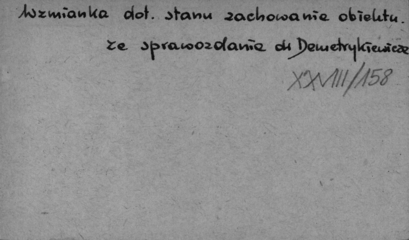 Wzmianka dot. stanu zachowanie obiektu.
ze sprawozdania dr Demetrykiewicza
XXVIII/158